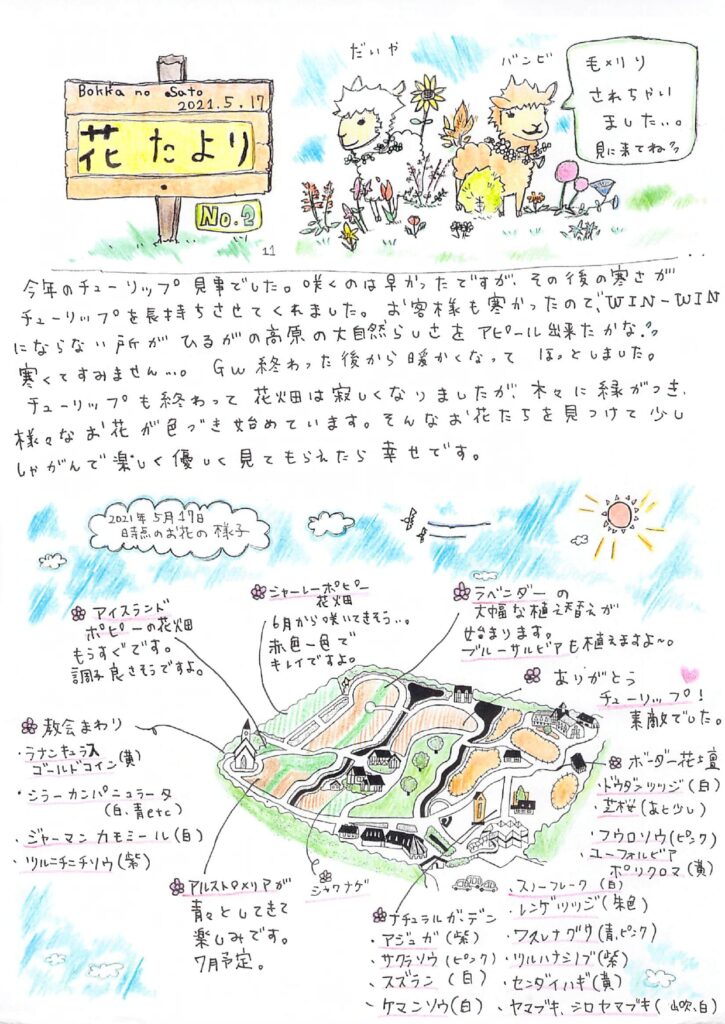 Bokka no Sato
2021.5.17
花たより
No.2
だいや
バンビ
毛刈り
されちゃい
ました…。
見に来てね?
今年のチューリップ見事でした。咲くのは早かったですが、その後の寒さが
チューリップを長持ちさせてくれました。お客様も寒かったので、WIN-WIN
にならない所がひるがの高原の大自然らしさをアピール出来たかな??
寒くてすみません…。GW終わった後から暖かくなって ほっとしました。
チューリップも終わって花畑は寂しくなりましたが、木々に緑がつき、
様々なお花が色づき始めています。そんなお花たちを見つけて少し
しゃがんで楽しく優しく見てもらえたら幸せです。
2021年5月17日
時点のお花の様子
アイスランド
ポピーの花畑
もうすぐです。
調子良さそうですよ。
シャーレーポピー
花畑
6月から咲いてきそう…。
赤色一色で
キレイですよ。
ラベンダーの
大幅な植え替えが
始まります。
ブルーサルビアも植えますよ〜。
ありがとう
チューリップ!
素敵でした。
教会まわり
・ラナンキュラス
ゴールドコイン(黄)
・シラー カンパニュラータ
(白、青etc)
・ジャーマンカモミール(白)
・ツルニチニチソウ(紫)
ボーダー花壇
・ドウダンツツジ(白)
・芝桜(あと少し)
・フウロソウ(ピンク)
・ユーフォルビア
ポリクロマ(黄)
アルストロメリアが
青々としてきて
楽しみです。
7月予定。
シャクナゲ
ナチュラルガーデン
・アジュガ(紫)
・サクラソウ(ピンク)
・スズラン(白)
・ケマンソウ(白)
・スノーフレーク(白)
・レンゲツツジ(朱色)
・ワスレナグサ(青,ピンク)
・ツルハナシノブ(紫)
・センダイハギ(黄)
・ヤマブキ、シロヤマブキ(山吹、白)